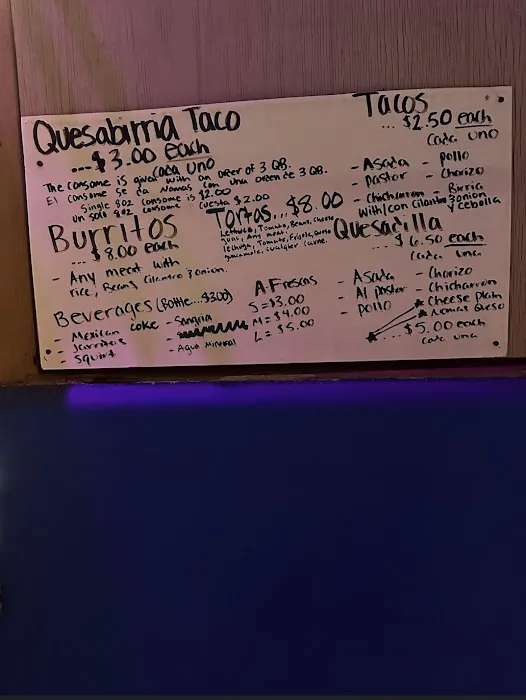 Quesabirria Taco
.... $3.00 each
cada uno
The consome is given with an order of 3 QB.
El consome se da nomas con una orden de 3 QB.
single 8oz consome is $2.00
un solo 8oz consome cuesta $2.00
Burritos
... $8.00 each
- Any meat with
rice, Beans Cilantro & onion.
Beverages (Bottle...$3.00)
- Mexican coke
- Jarritos
- Squirt
- Sangria
- Agua Mineral
Tortas... $8.00
Lettuce, Tomato, Beans, Cheese
guac, Any meat.
lechuga, Tomate, Frijoles, Queso
guacamole, cualquier carne.
A. Frescas
S = $3.00
M = $4.00
L = $5.00
Tacos
... $2.50 each
Cada uno
- Asada
- pastor
- Chicharron
- pollo
- Chorizo
- Birria
With/con Cilantro & onion
y cebolla
Quesadilla
... $6.50 each
cada una
- Asada
- Al pastor
- pollo
- Chorizo
- Chicharron
Cheese plain
Nomas Queso
... $5.00 each
cada una